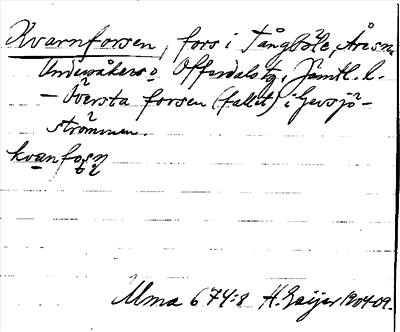 Kvarnforsen, fors i Tångböle, Åre sn.
Undersåkers o. Offerdals tg, Jämtl. l.
— Översta forsen (fallet) i Gevsjö-
strömmen.
kvanforsn
Ulma 674:8 H. Geijer 1904-09.